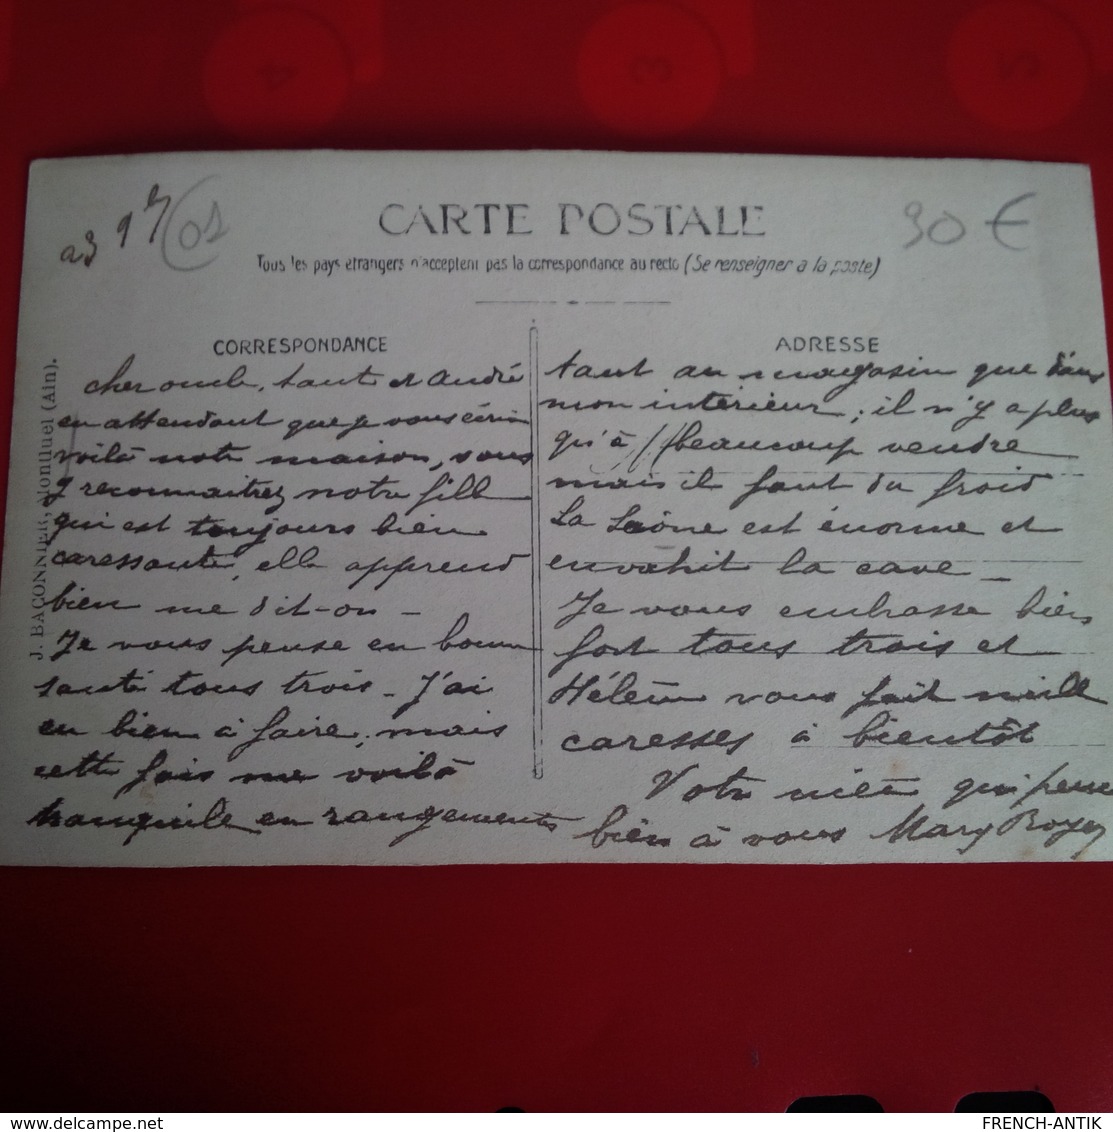 a3 97
01
30 €
CARTE POSTALE
Tous les pays étrangers n'acceptent pas la correspondance au recto (Se renseigner à la poste)
CORRESPONDANCE
cher oncle, tante et André
en attendant que je vous écrive
voilà notre maison, vous
y reconnaitrez notre fille
qui est toujours bien
caressante, elle apprend
bien me dit-on -
Je vous pense en bonne
santé tous trois - J'ai
eu bien à faire, mais
cette fois me voilà
tranquile en rangements
ADRESSE
tant au magasin que dans
mon intérieur; il n'y a plus
qu'à beaucoup vendre
mais il faut du froid
La Saône est énorme et
envahit la cave -
Je vous embrasse bien
fort tous trois et
Hélène vous fait mille
caresses à bientôt
Votre nièce qui pense
bien à vous Mary Royer
J. BACONNIER, Montluel (Ain).
www.delcampe.net
FRENCH-ANTIK
4
3
2